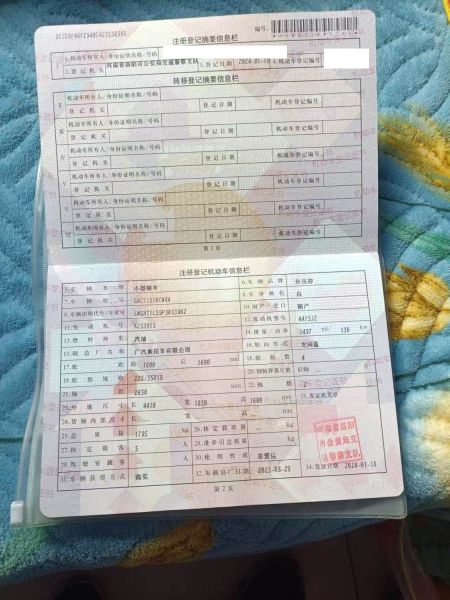 注册登记摘要信息栏
编号:
1.机动车所有人/身份证明名称/号码
2.登记机关 河南省洛阳市公安局交通警察支队 3.登记日期 2024-01-18 4.机动车登记编号
转移登记摘要信息栏
Ⅱ 机动车所有人/身份证明名称/号码
登记机关 登记日期 机动车登记编号
Ⅲ 机动车所有人/身份证明名称/号码
登记机关 登记日期 机动车登记编号
Ⅳ 机动车所有人/身份证明名称/号码
登记机关 登记日期 机动车登记编号
Ⅴ 机动车所有人/身份证明名称/号码
登记机关 登记日期 机动车登记编号
机动车所有人/身份证明名称/号码
登记机关 登记日期 机动车登记编号
机动车所有人/身份证明名称/号码
登记机关 登记日期 机动车登记编号
第1页
注册登记机动车信息栏
5.车辆类型 小型轿车 6.车辆品牌
7.车辆型号 8.车身颜色 白
9.车辆识别代号/车架号 10.国产/进口 国产
11.发动机号 12.发动机型号 4A15J2
13.燃料种类 汽油 14.排量/功率 1497 ml/ 130 kw
15.制造厂名称 广汽乘用车有限公司 16.转向形式 左向盘
17.轮距 前 1600 后 1600 mm 18.轮胎数 4
19.轮胎规格 225/55R18 20.钢板弹簧片数 后轴 片
21.轴距 2650 mm 22.轴数 2
23.外廓尺寸 长 4410 宽 1850 高 1600 mm 33.发证机关章
24.货厢内部尺寸 长 宽 高 mm
25.总质量 1795 kg 26.核定载质量 kg
27.核定载客 5 人 28.准牵引总质量 kg
29.驾驶室载客 人 30.使用性质 非营运
31.车辆获得方式 购买 32.车辆出厂日期 2023-08-25 34.发证日期 2024-01-18
河南省洛阳
市公安局交
通警察支队
第2页